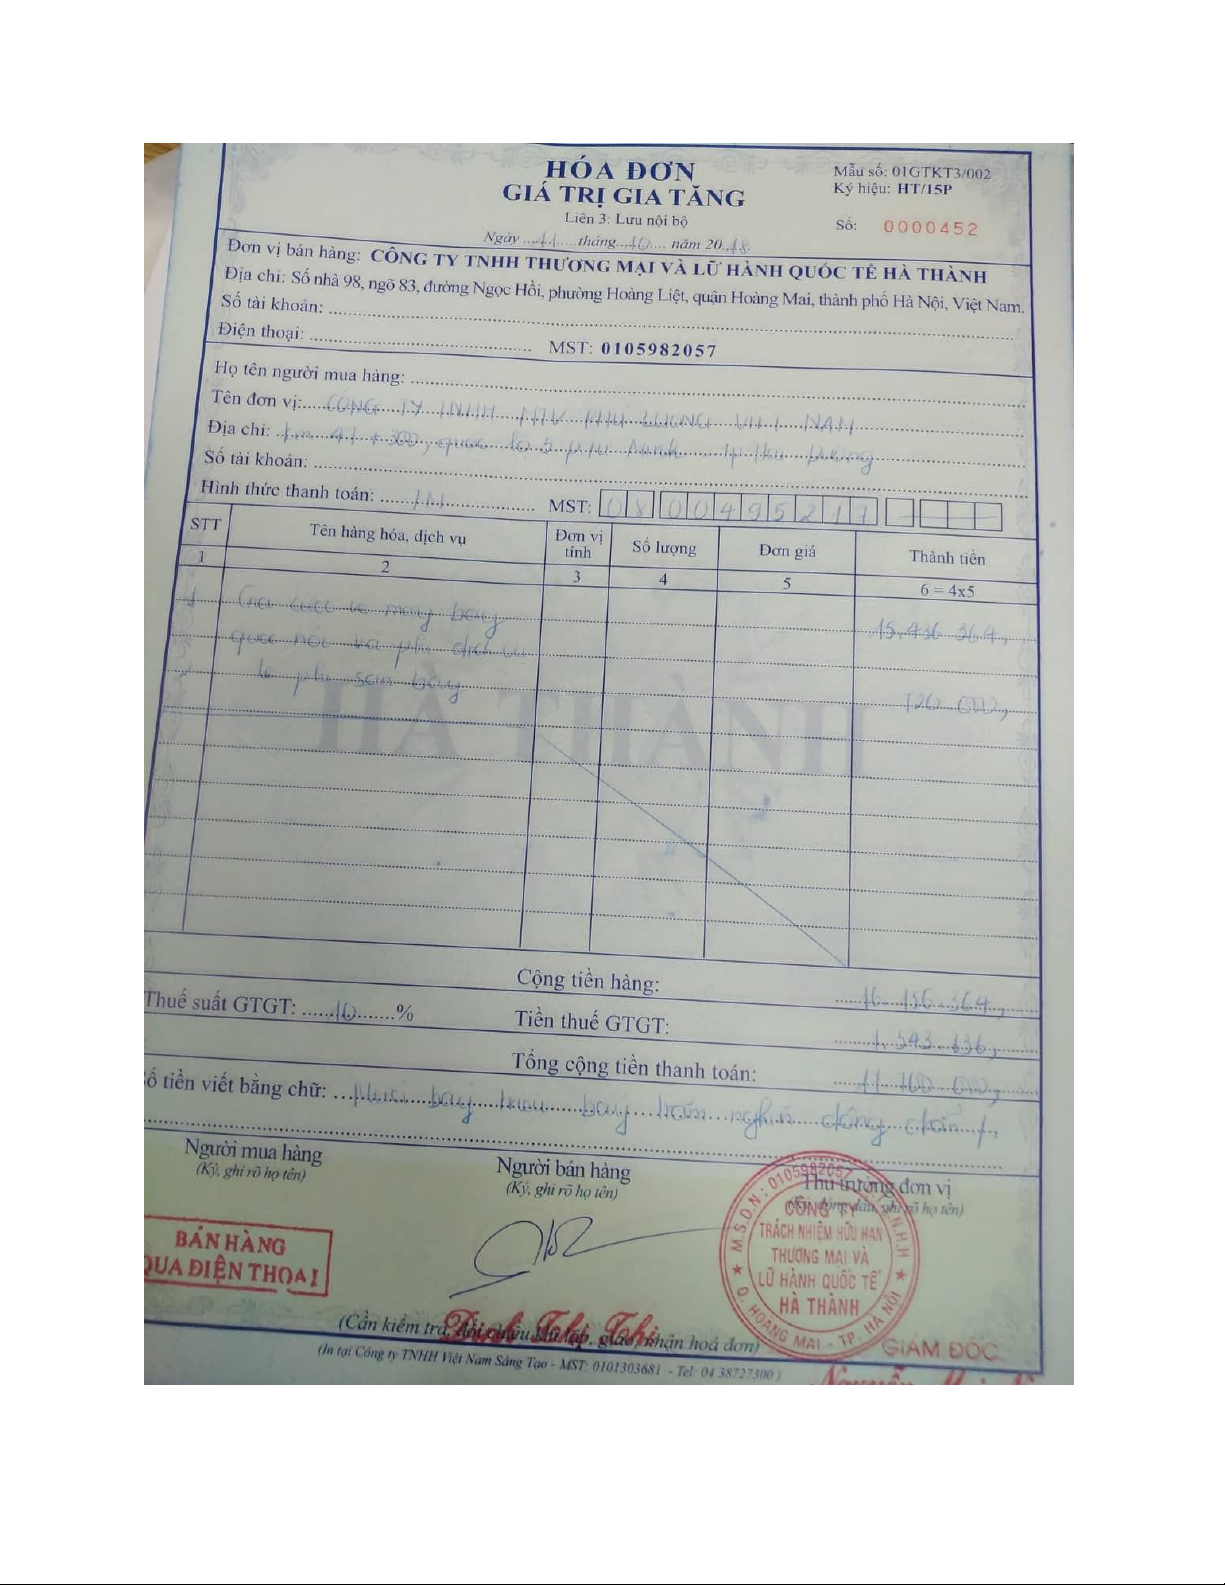 HÓA ĐƠN
GIÁ TRỊ GIA TĂNG
Liên 3: Lưu nội bộ
Ngày 11 tháng 10 năm 2018
Mẫu số: 01GTKT3/002
Ký hiệu: HT/15P
Số: 0000452
Đơn vị bán hàng: CÔNG TY TNHH THƯƠNG MẠI VÀ LỮ HÀNH QUỐC TẾ HÀ THÀNH
Địa chỉ: Số nhà 98, ngõ 83, đường Ngọc Hồi, phường Hoàng Liệt, quận Hoàng Mai, thành phố Hà Nội, Việt Nam.
Số tài khoản:
Điện thoại: MST: 0105982057
Họ tên người mua hàng:
Tên đơn vị: CÔNG TY TNHH VIỆT NAM
Địa chỉ: km 47 + 300, quốc lộ 5 Tp Hải Dương
Số tài khoản:
Hình thức thanh toán: TM MST: 0800495217
STT Tên hàng hóa, dịch vụ Đơn vị tính Số lượng Đơn giá Thành tiền
1 2 3 4 5 6 = 4x5
1 Giá cước vé máy bay 15.436.364,
quốc nội và phí dịch vụ
2 lệ phí sân bay 720.000,
HÀ THÀNH
Cộng tiền hàng: 16.156.364,
Thuế suất GTGT: 10 % Tiền thuế GTGT: 1.543.636,
Tổng cộng tiền thanh toán: 17.700.000,
Số tiền viết bằng chữ: Mười bảy triệu bảy trăm nghìn đồng chẵn /,
Người mua hàng
(Ký, ghi rõ họ tên)
Người bán hàng
(Ký, ghi rõ họ tên)
Thủ trưởng đơn vị
(Ký, đóng dấu, ghi rõ họ tên)
BÁN HÀNG
QUA ĐIỆN THOẠI
M.S.D.N: 0105982057 T.N.H.H
CÔNG TY
TRÁCH NHIỆM HỮU HẠN
THƯƠNG MẠI VÀ
LỮ HÀNH QUỐC TẾ
HÀ THÀNH
Q. HOÀNG MAI - TP. HÀ NỘI
GIÁM ĐỐC
(Cần kiểm tra, đối chiếu khi lập, giao, nhận hoá đơn)
(In tại Công ty TNHH Việt Nam Sáng Tạo - MST: 0101303681 - Tel: 04 38727300)